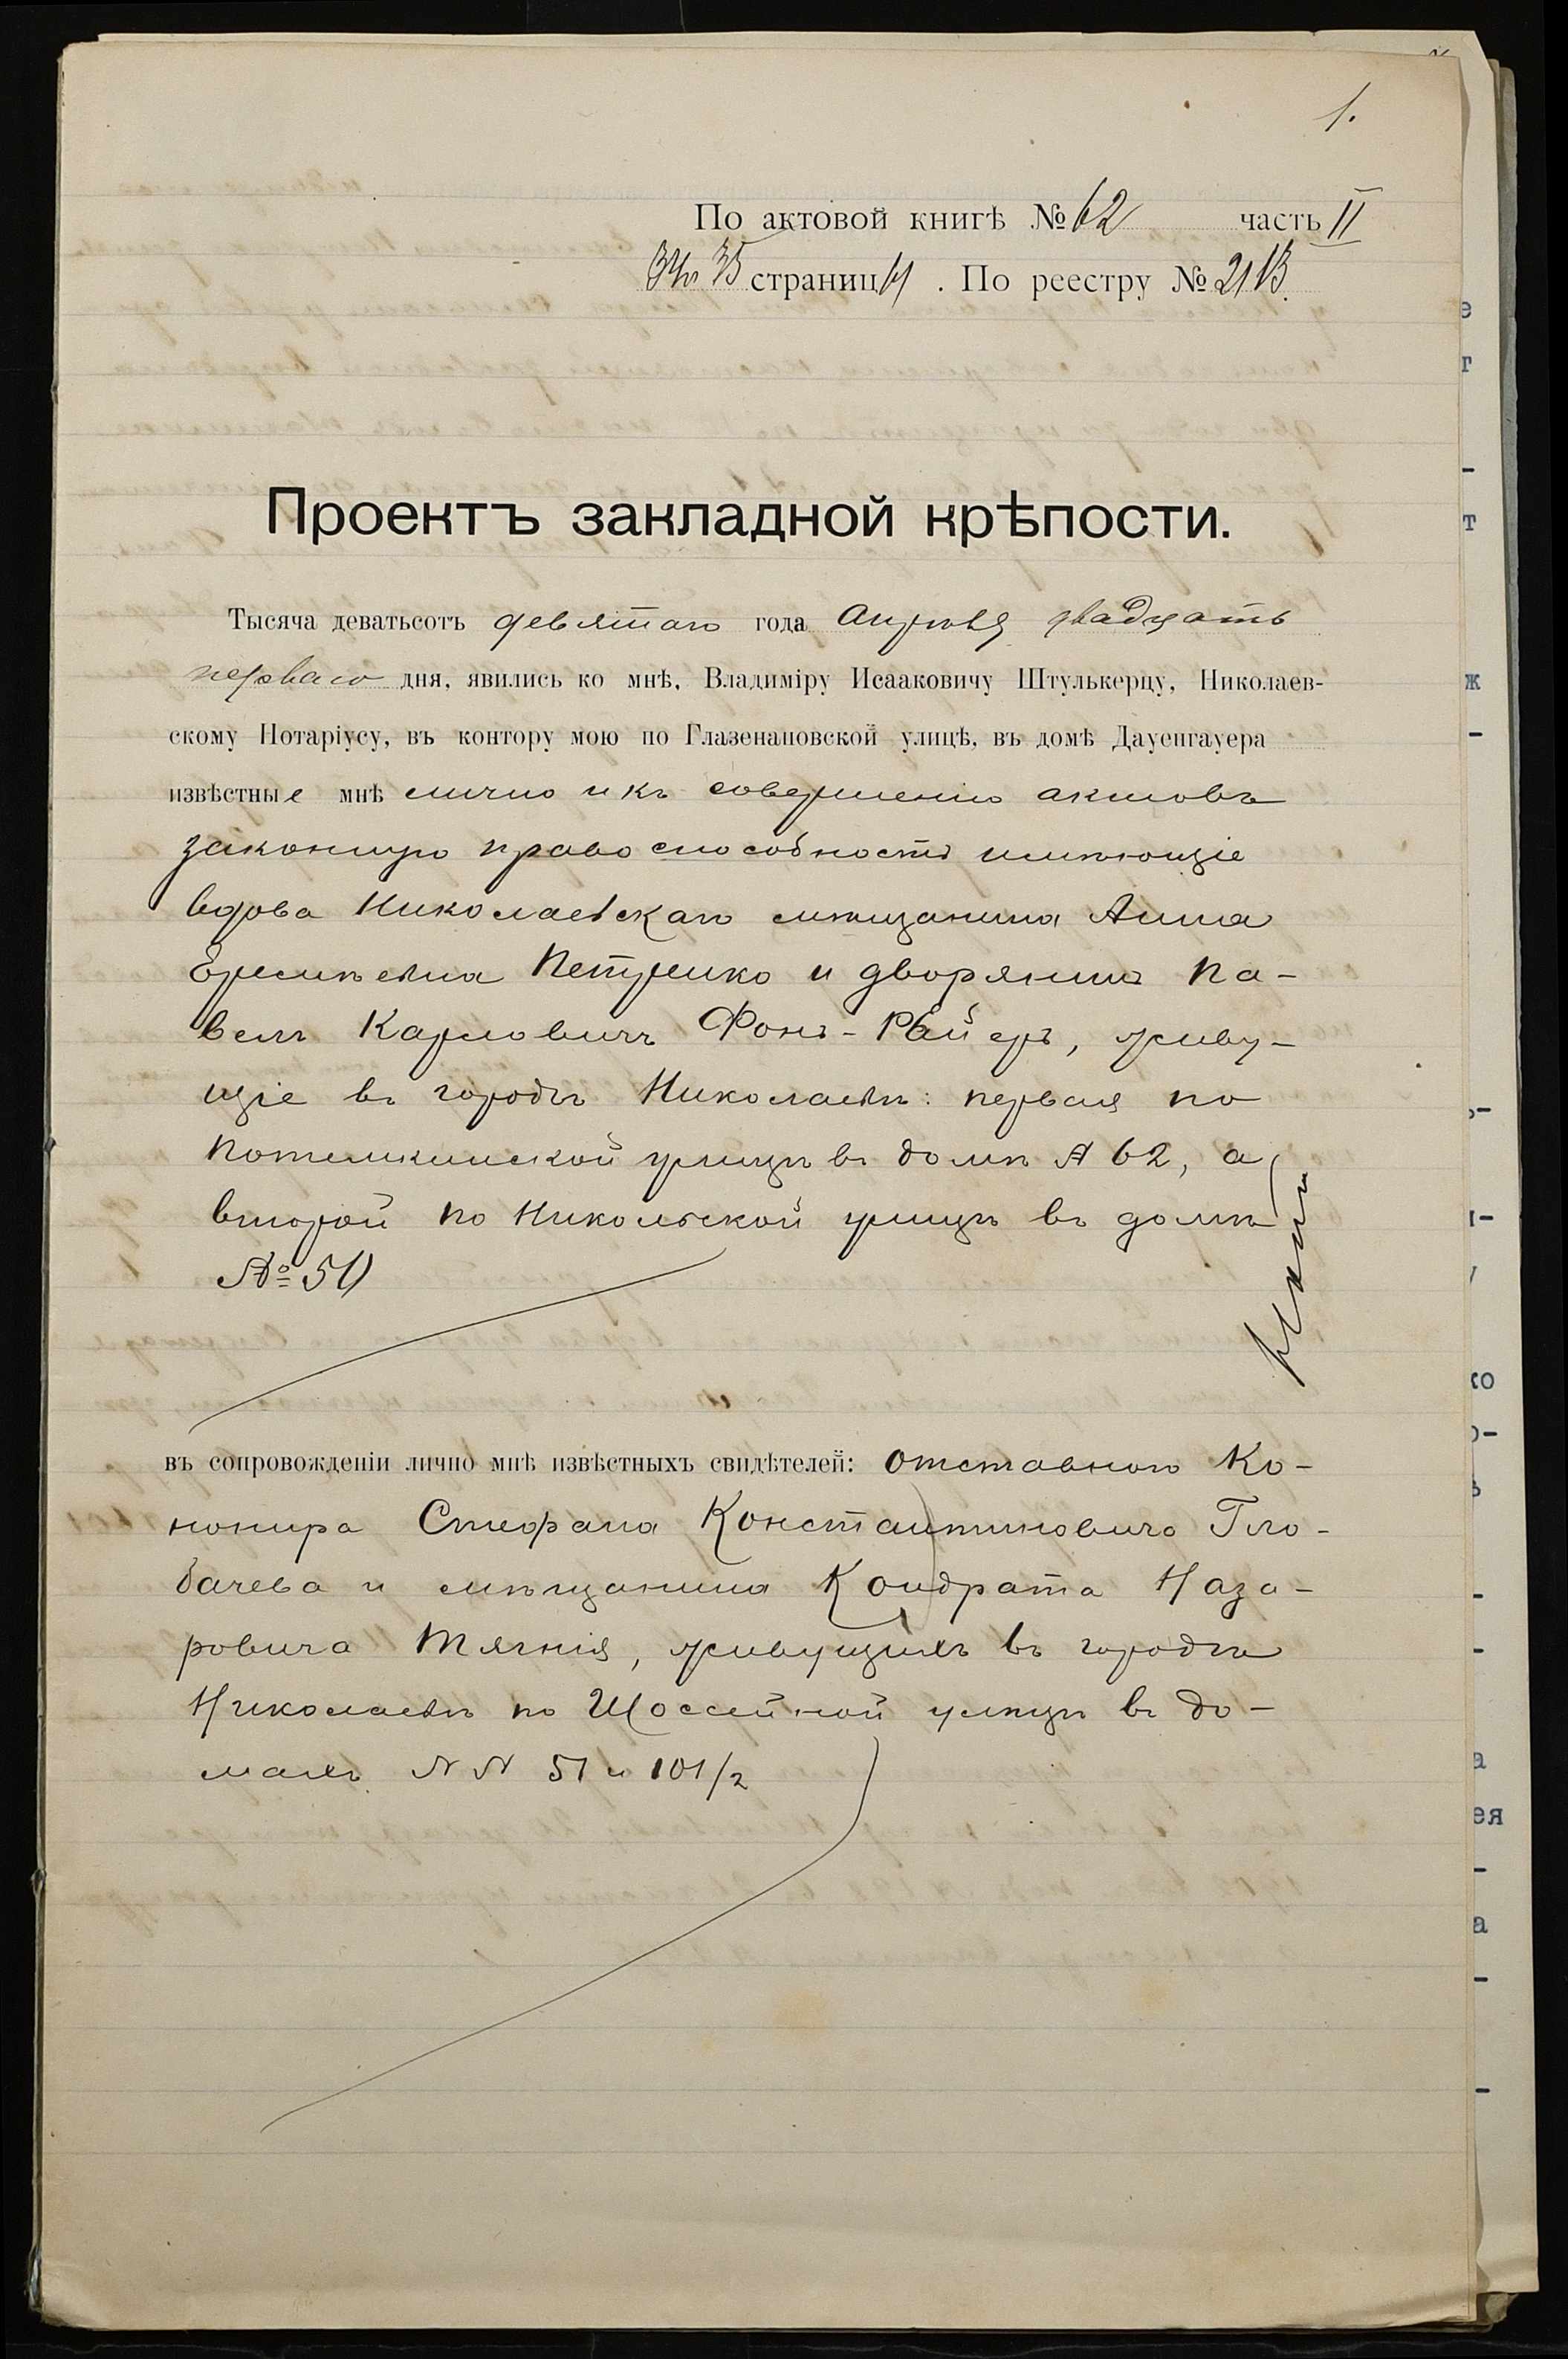 1.
По актовой книгѣ № 62 часть II
34 и 35 страницы. По реестру № 2113.
Проектъ закладной крѣпости.
Тысяча деватьсотъ девятаго года Апрѣля двадцать
перваго дня, явились ко мнѣ, Владиміру Исааковичу Штулькерцу, Николаев-
скому Нотаріусу, въ контору мою по Глазенаповской улицѣ, въ домѣ Дауенгауера
извѣстные мнѣ лично и къ совершенію актовъ
законную правоспособность имѣющіе
вдова Николаевскаго мѣщанина Анна
Еремѣевна Петренко и дворянинъ Па-
велъ Карловичъ Фонъ-Райеръ, живу-
щіе въ городѣ Николаевѣ: первая по
Потемкинской улицѣ въ домѣ № 62, а
второй по Никольской улицѣ въ домѣ
№ 50
въ сопровожденіи лично мнѣ извѣстныхъ свидѣтелей: отставного Ка-
нонира Стефана Константиновича Гло-
бачева и мѣщанина Кондрата Наза-
ровича Тягнія, живущихъ въ городѣ
Николаевѣ по Шоссейной улицѣ въ до-
махъ №№ 51 и 101/2